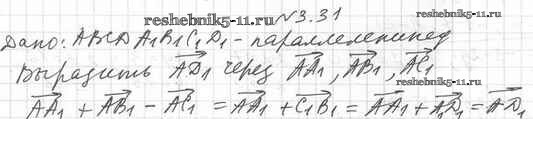 www.reshebnik5-11.ru/
reshebnik5-11.ru №3.31
Дано: ABCD A₁B₁C₁D₁ - параллелепипед
Выразить AD₁ через AA₁, AB₁, AC₁
AA₁ + AB₁ - AC₁ = AA₁ + C₁B₁ = AA₁ + A₁D₁ = AD₁